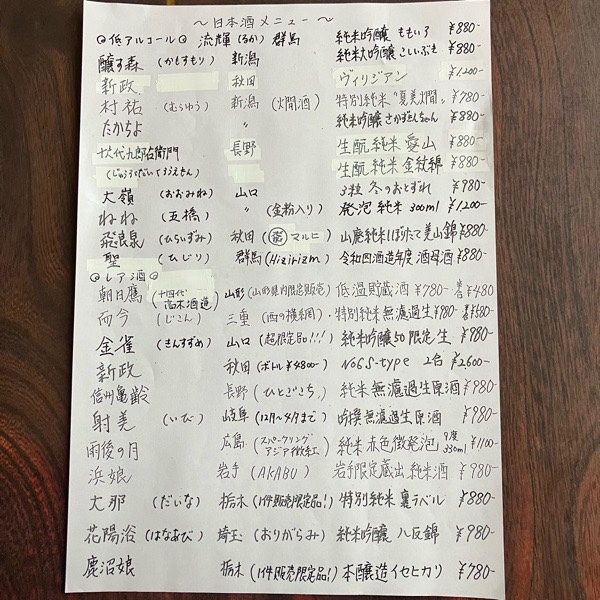 ～日本酒メニュー～
◎低アルコール◎ 流輝(るか) 群馬 純米吟醸 ももいろ ¥880-
醸す森 (かもすもり) 新潟 純米大吟醸 こしいぶき ¥880-
新政 秋田 ヴィリジアン ¥1,200-
村祐 (むらゆう) 新潟 (燗酒) 特別純米 "夏美燗" ¥780-
たかちよ 〃 純米吟醸 さかずきんちゃん ¥880-
十六代九郎右衛門 長野 生酛 純米 愛山 ¥880-
(じゅうろくだいくろうえもん) 生酛 純米 金紋錦 ¥880-
大嶺 (おおみね) 山口 3粒 冬のおとずれ ¥980-
ねね (五橋) 〃 (金粉入り) 発泡 純米 300ml ¥1,200-
飛良泉 (ひらいずみ) 秋田 (マルヒ) 山廃純米はぼたて美山錦 ¥880-
聖 (ひじり) 群馬 (Hizirizm) 令和四酒造年度 酒母酒 ¥880-
◎レア酒◎
朝日鷹 (十四代 高木酒造) 山形 (山形県内限定販売) 低温貯蔵酒 ¥780- ¥480
而今 (じこん) 三重 (西の横綱)・特別純米無濾過生 ¥980-
金雀 (きんすずめ) 山口 (超限定品!!!) 純米吟醸50限定生 ¥980-
新政 秋田 (ボトル¥4800-) No6 S-type 2合 ¥2,600-
信州亀齢 長野 (ひとごこち) 純米 無濾過生原酒 ¥880-
射美 (いび) 岐阜 (12月～4月まで) 吟撰無濾過生原酒 ¥980-
雨後の月 広島 (スパークリング アジア微紅) 純米 赤色微発泡 9度 330ml ¥1100-
浜娘 岩手 (AKABU) 岩手限定蔵出 純米酒 ¥980-
大那 (だいな) 栃木 (1件販売限定品!) 特別純米 裏ラベル ¥880-
花陽浴 (はなあび) 埼玉 (おりがらみ) 純米吟醸 八反錦 ¥980-
鹿沼娘 栃木 (1件販売限定品!) 本醸造イセヒカリ ¥780-